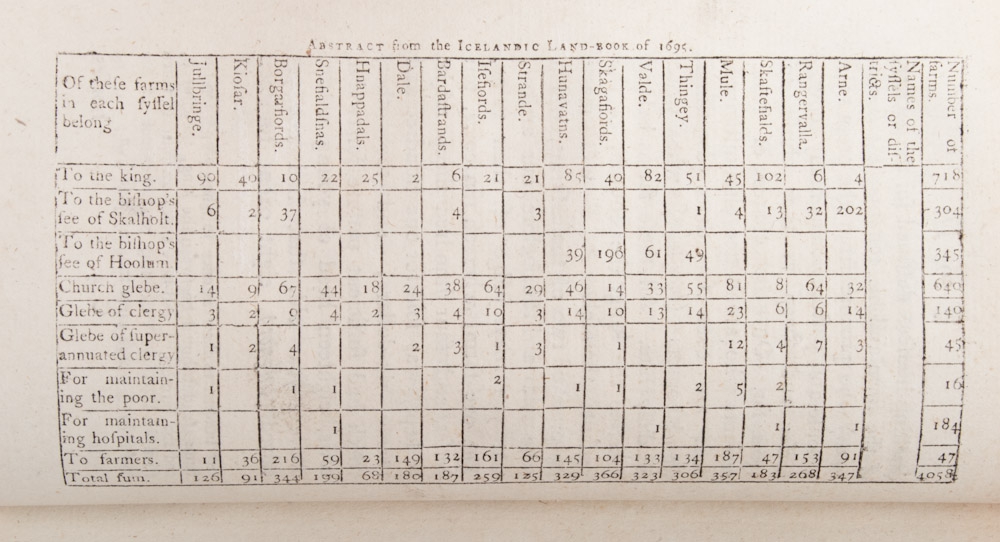 ABSTRACT from the ICELANDIC LAND-BOOK of 1695.
Of theſe farms in each ſyſſel belong | Jullbringe. | Kioſar. | Borgarfiords. | Snefialdſnas. | Hnappadals. | Dale. | Bardaſtrands. | Iſefiords. | Strande. | Hunavatns. | Skagafiords. | Valde. | Thingey. | Mule. | Skaftefialds. | Rangervalla. | Arne. | Names of the ſyſſels or diſtricts. | Number of farms.
To the king. | 90 | 40 | 10 | 22 | 25 | 2 | 6 | 21 | 21 | 85 | 40 | 82 | 51 | 45 | 102 | 6 | 4 | | 718
To the biſhop's ſee of Skalholt. | 6 | 2 | 37 | | | | 4 | | 3 | | | | 1 | 4 | 13 | 32 | 202 | | 304
To the biſhop's ſee of Hoolum. | | | | | | | | | | 39 | 196 | 61 | 49 | | | | | | 345
Church glebe. | 14 | 9 | 67 | 44 | 18 | 24 | 38 | 64 | 29 | 46 | 14 | 33 | 55 | 81 | 8 | 64 | 32 | | 640
Glebe of clergy | 3 | 2 | 9 | 4 | 2 | 3 | 4 | 10 | 3 | 14 | 10 | 13 | 14 | 23 | 6 | 6 | 14 | | 140
Glebe of ſuper-annuated clergy | 1 | 2 | 4 | | | 2 | 3 | 1 | 3 | | 1 | | | 12 | 4 | 7 | 3 | | 45
For maintain-ing the poor. | 1 | | 1 | 1 | | | | 2 | | 1 | 1 | | 2 | 5 | 2 | | | | 16
For maintain-ing hoſpitals. | | | | 1 | | | | | | | | 1 | | | 1 | | 1 | | 184
To farmers. | 11 | 36 | 216 | 59 | 23 | 149 | 132 | 161 | 66 | 145 | 104 | 133 | 134 | 187 | 47 | 153 | 91 | | 47
Total ſum. | 126 | 91 | 344 | 199 | 68 | 180 | 187 | 259 | 125 | 329 | 366 | 323 | 306 | 357 | 183 | 268 | 347 | | 4058